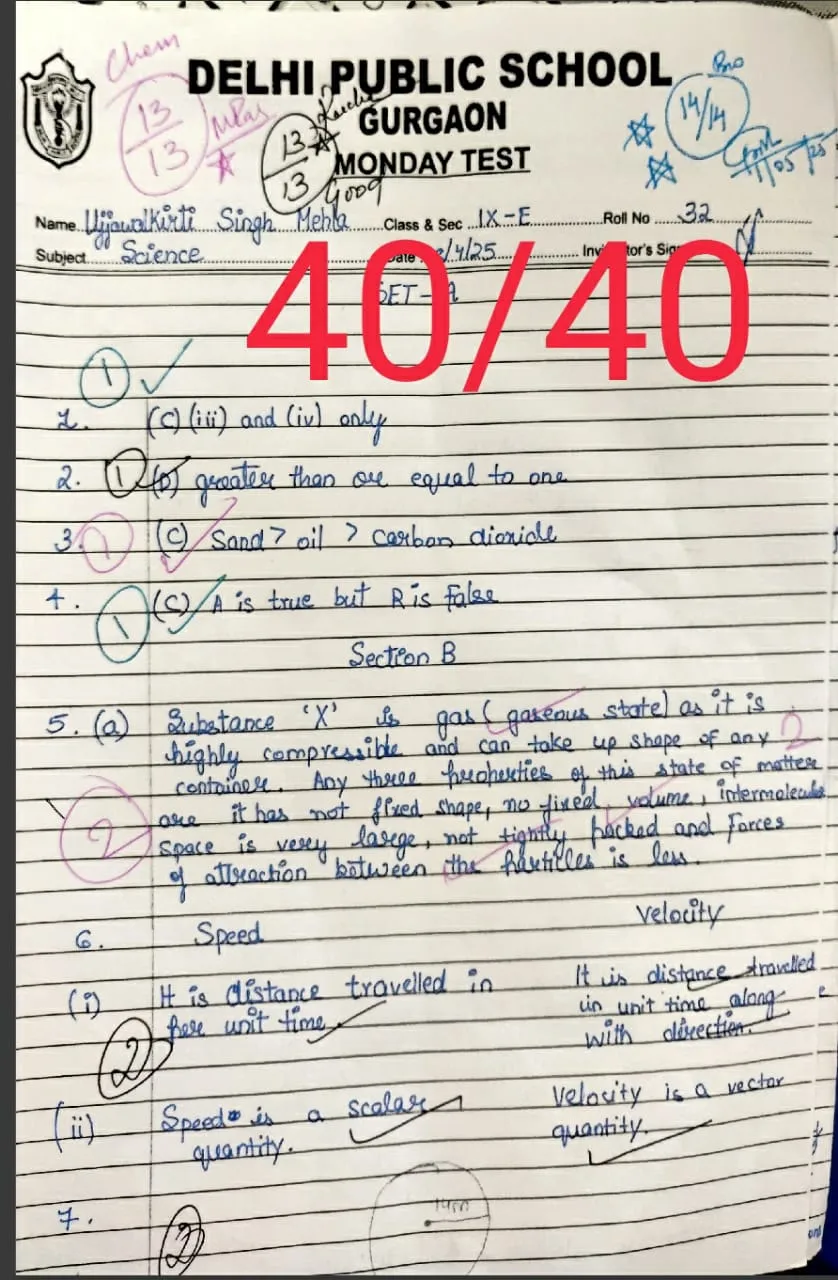 Chem
13/13
DELHI PUBLIC SCHOOL
Bio
14/14
13/13
GURGAON
MONDAY TEST
Good
Name Ujjawalkirti Singh Mehla Class & Sec IX-E Roll No 32
Subject Science Date /4/25
SET - A
40/40
1
1. (C) (iii) and (iv) only
2. 1 (D) greater than or equal to one
3. 1 (C) Sand > oil > Carbon dioxide
4. 1 (C) A is true but R is False
Section B
5. (a) Substance 'X' is gas (gaseous state) as it is
highly compressible and can take up shape of any 2
container. Any three properties of this state of matter
2 are it has not fixed shape, no fixed volume, intermolecular
space is very large, not tightly packed and Forces
of attraction between the particles is less.
6. Speed Velocity
(i) It is distance travelled in It is distance travelled
per unit time in unit time along
2 with direction.
(ii) Speed is a scalar Velocity is a vector
quantity. quantity.
7. 2